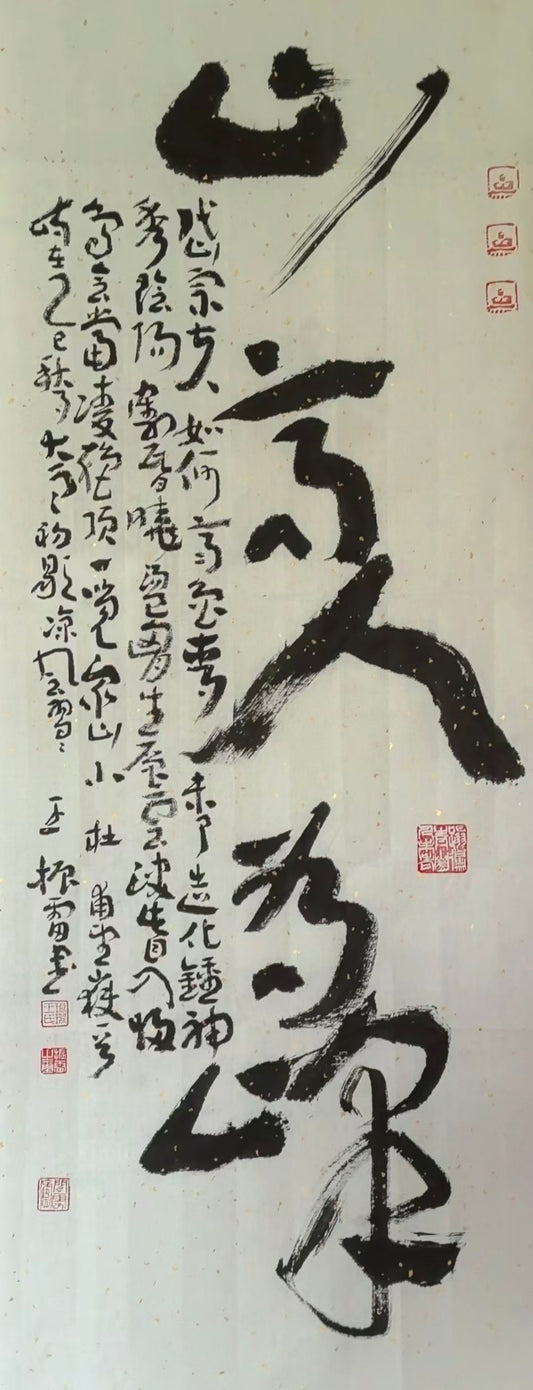 山高人为峰
岱宗夫如何齐鲁青未了造化鐘神
秀陰陽割昏曉盪胸生層雲決眥入歸
鳥會當凌絕頂一覽衆山小杜甫望嶽一首
時在乙巳秋初涼風習習王振雷書